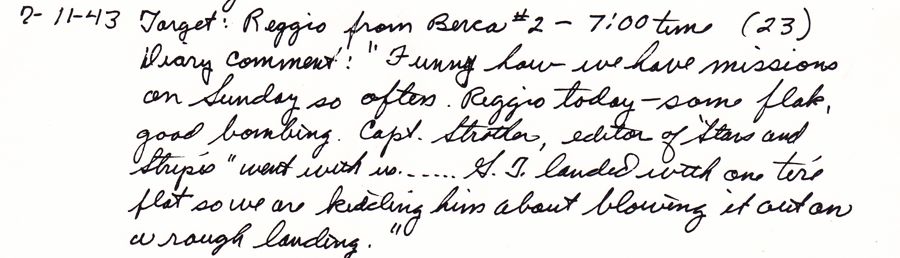 7-11-43 Target: Reggio from Berca #2 - 7:00 time (23)
Diary comment: "Funny how we have missions
on Sunday so often. Reggio today - some flak,
good bombing. Capt. Strother, editor of "Stars and
Stripes" went with us...... G. T. landed with one tire
flat so we are kidding him about blowing it out on
a rough landing."